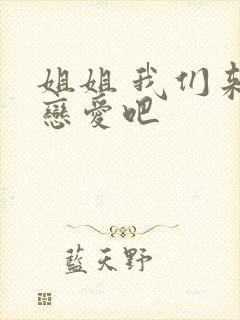 姐姐我们来
戀愛吧
藍天野